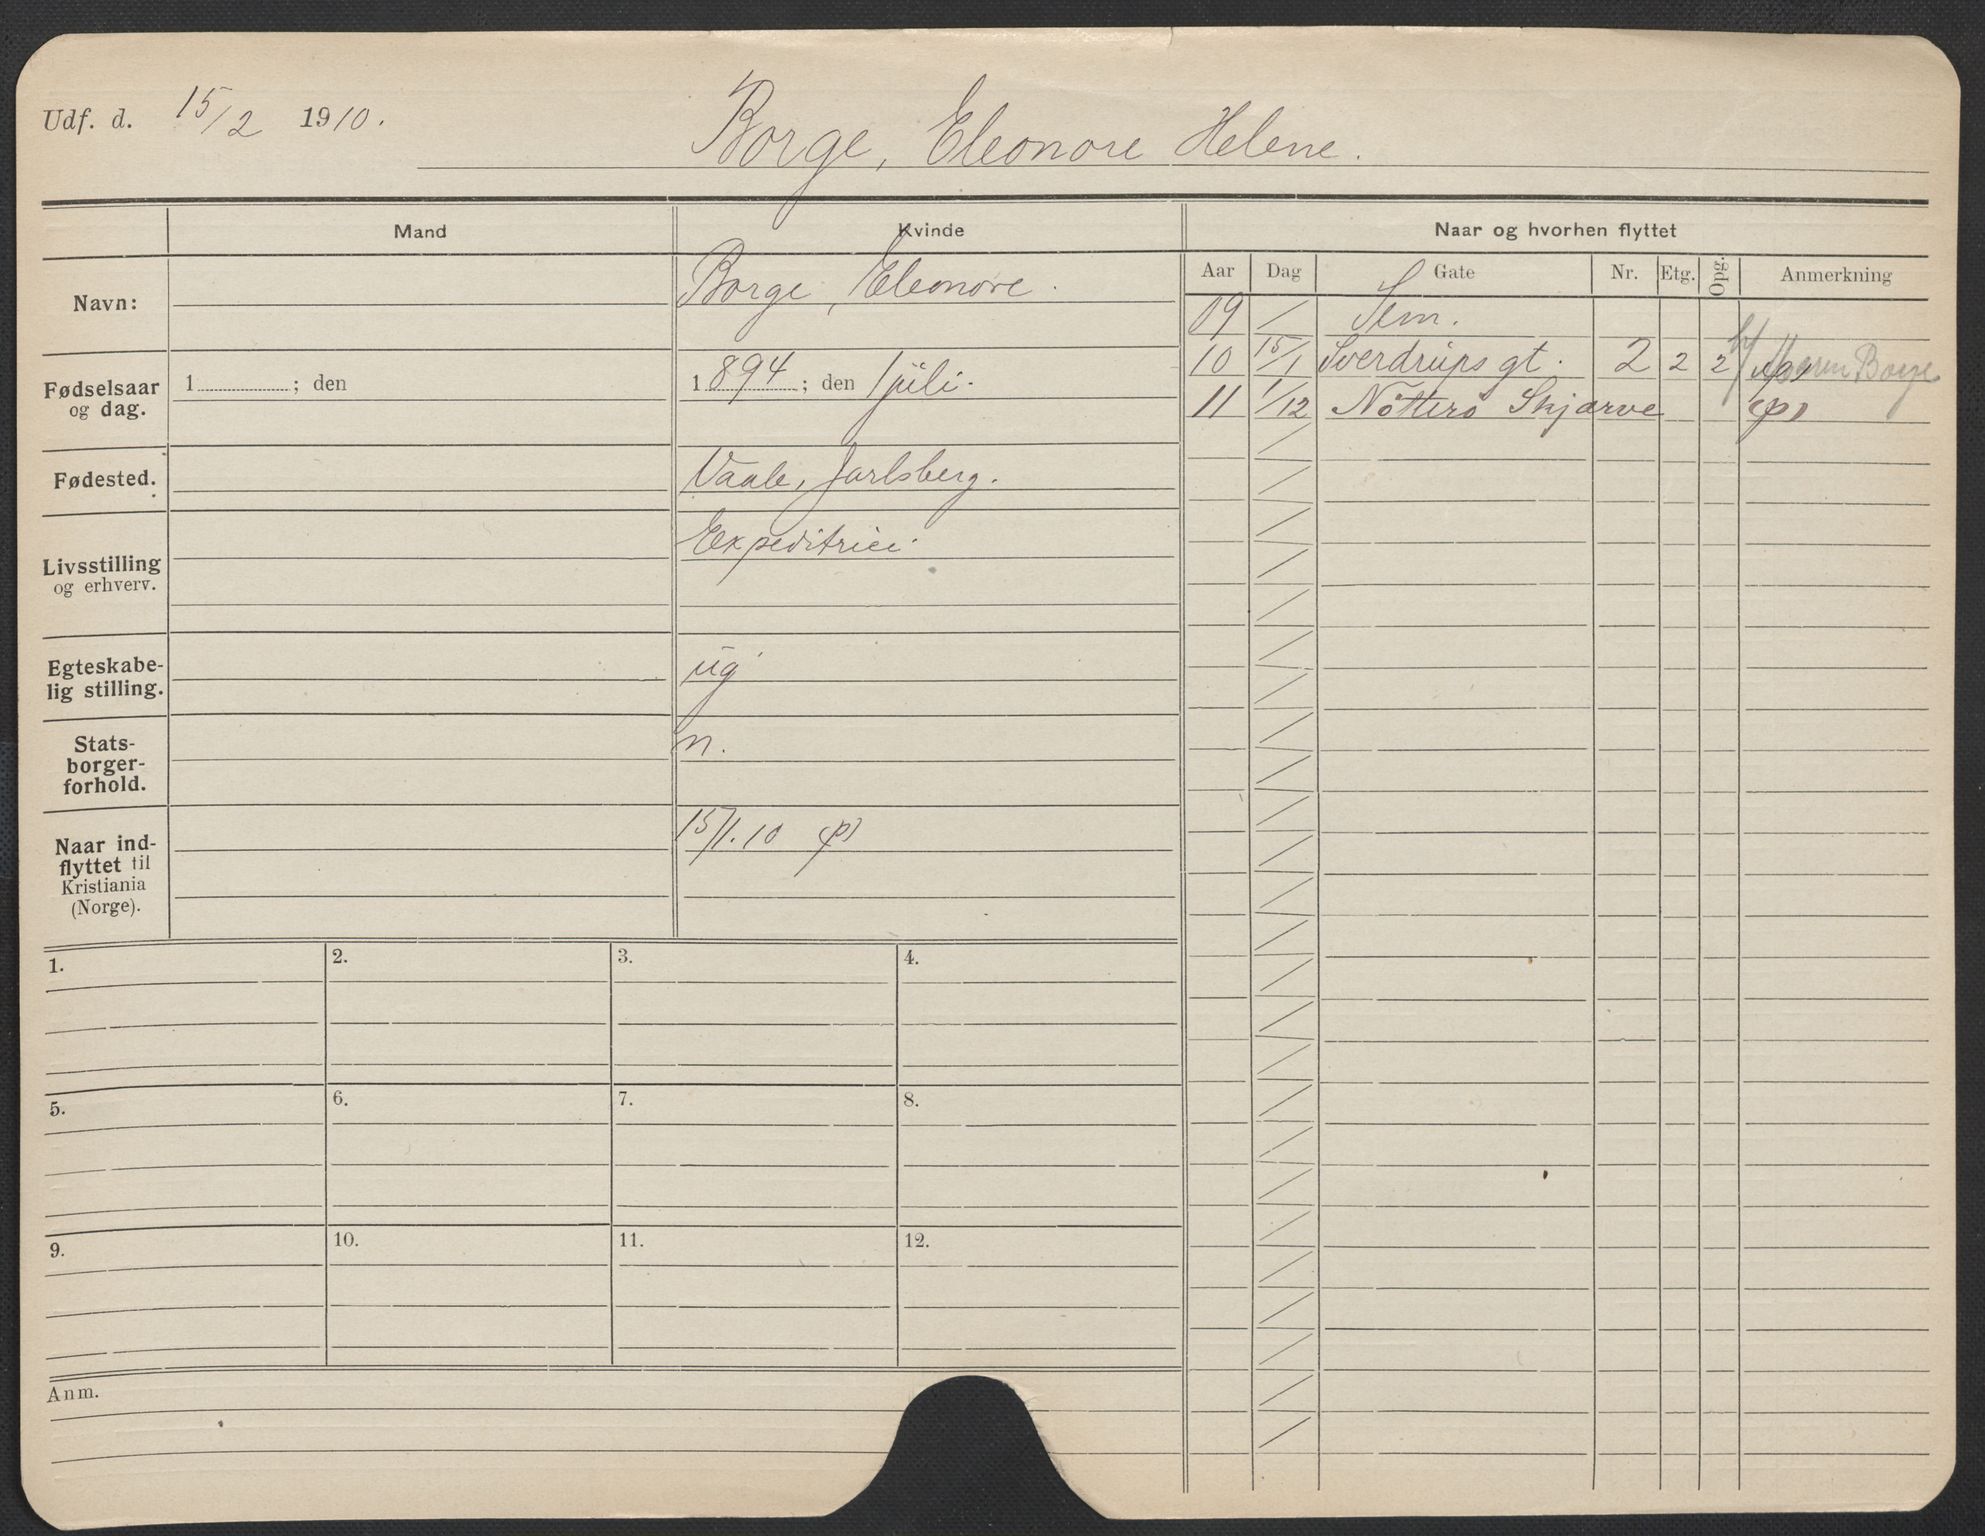 Udf. d. 15/2 1910.
Borge, Eleonore Helene.
Mand
Kvinde
Naar og hvorhen flyttet
Navn:
Borge, Eleonore.
Fødselsaar og dag.
1 ; den
1894 ; den 1 juli.
Fødested.
Vaale, Jarlsberg.
Livsstilling og erhverv.
Expeditrice.
Egteskabe-
lig stilling.
ug
Stats-
borger-
forhold.
n.
Naar ind-
flyttet til
Kristiania
(Norge).
15/1.10 (p)
Aar Dag Gate Nr. Etg. Opg. Anmerkning
09 / Sem.
10 15/1 Sverdrups gt. 2 2 2 b/ Maren Borge (p)
11 1/12 Nötterö Skjærve (p)
1. 2. 3. 4.
5. 6. 7. 8.
9. 10. 11. 12.
Anm.